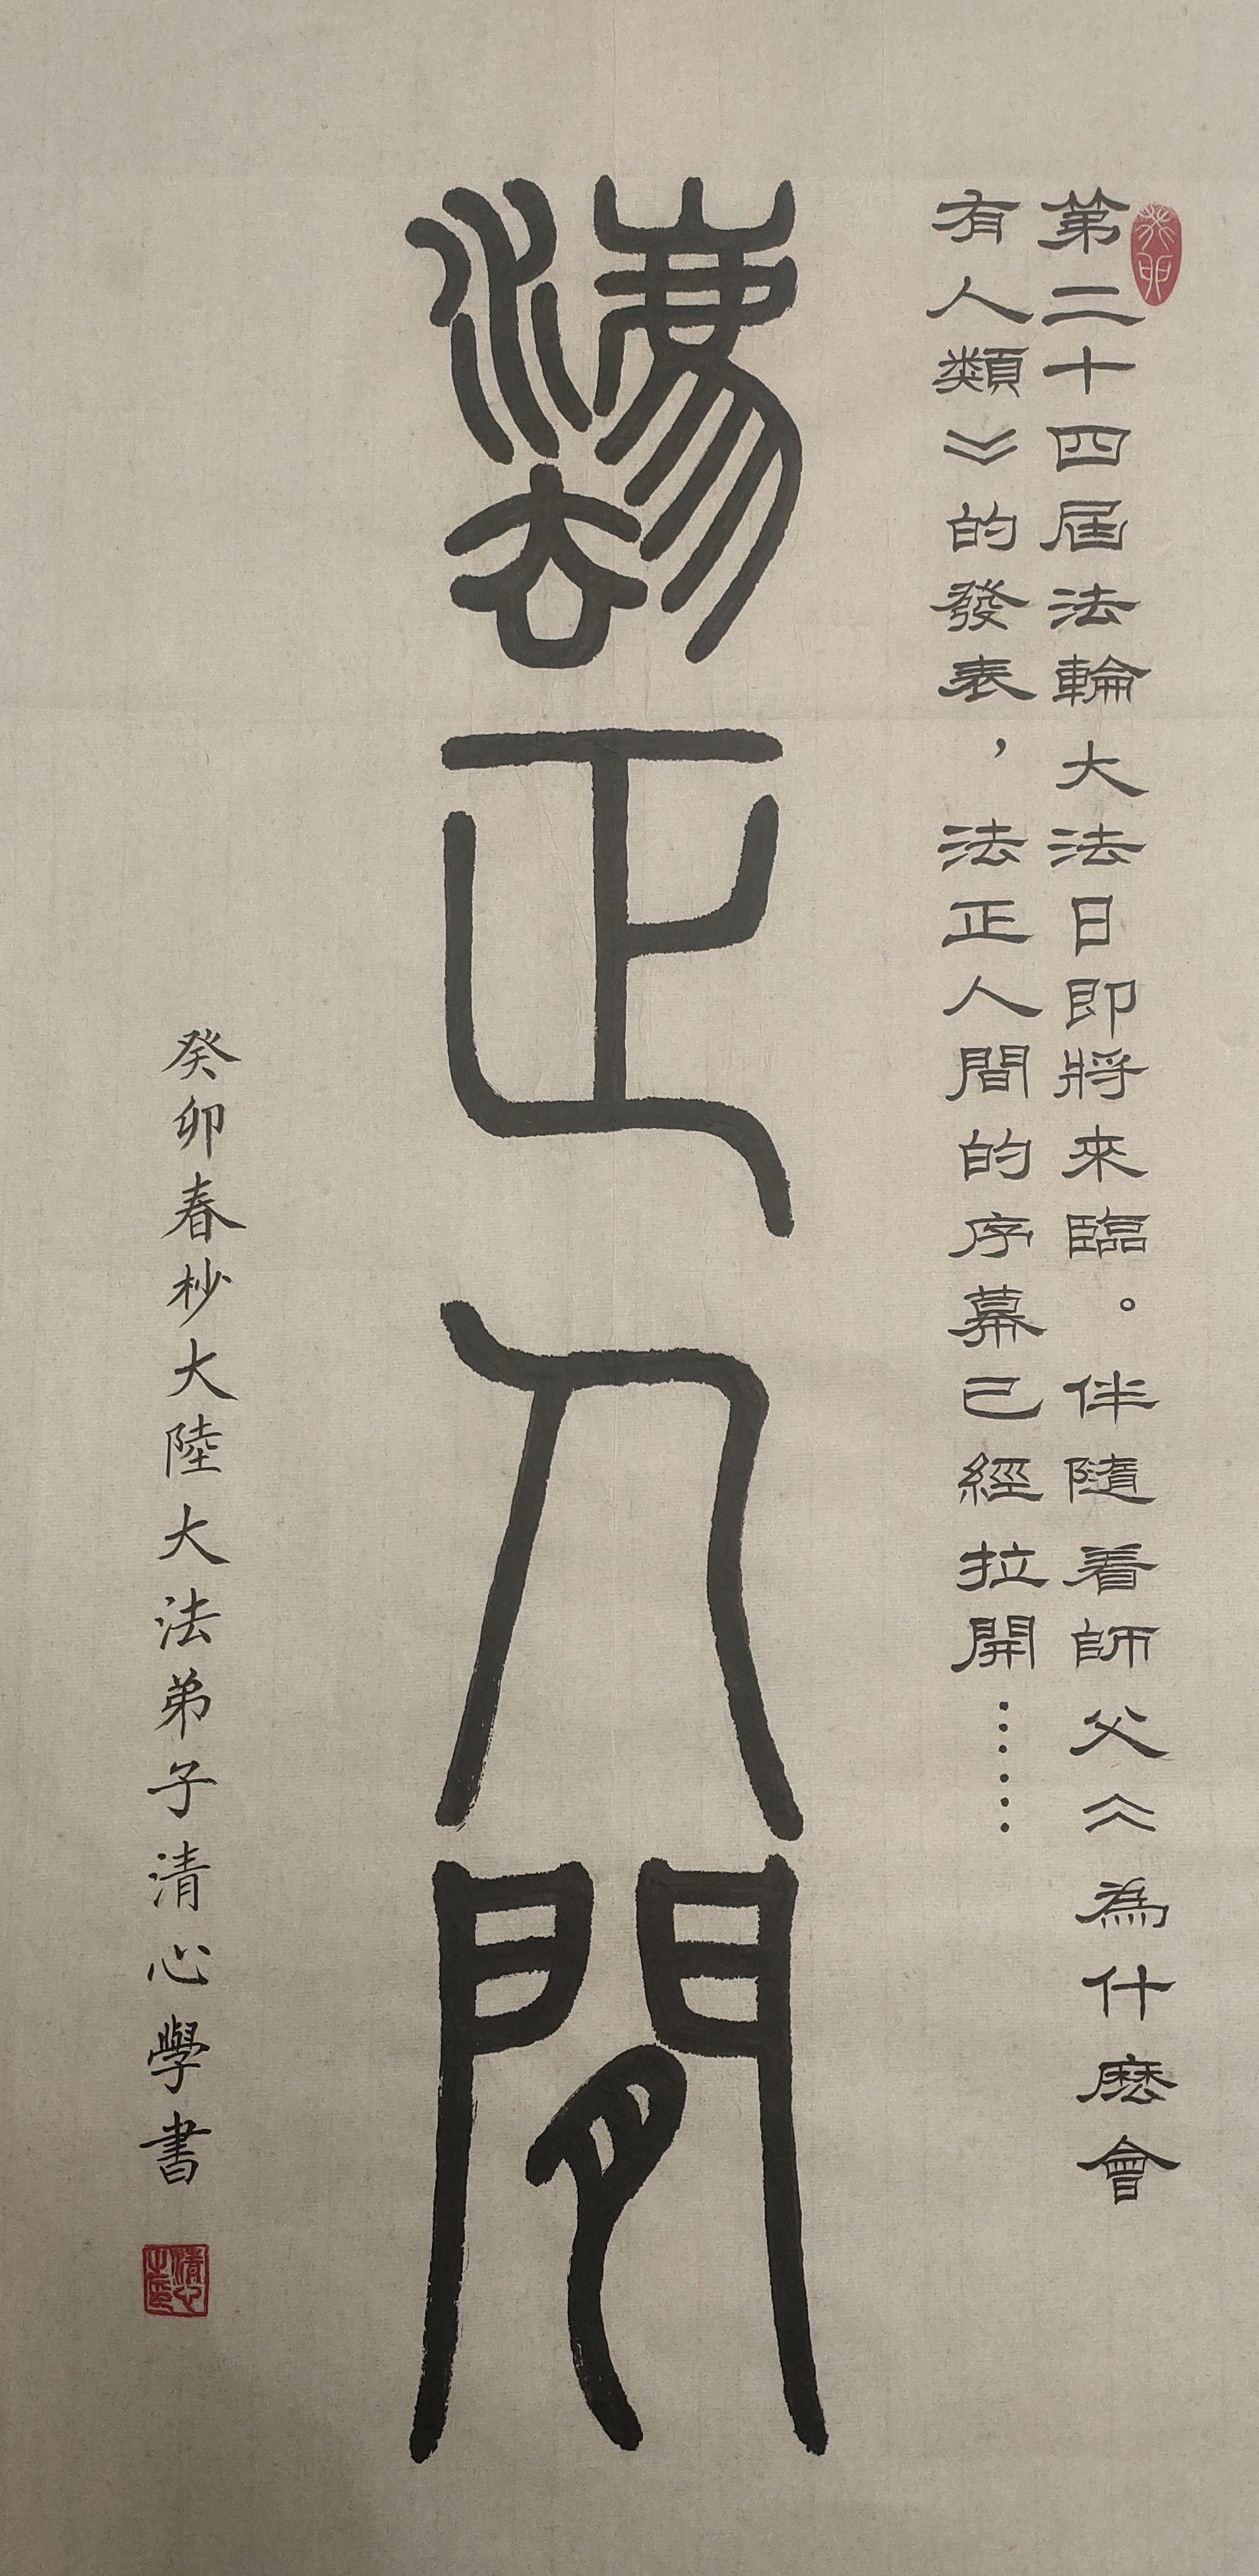 癸卯
第二十四屆法輪大法日即將來臨。伴隨着師父《為什麼會
有人類》的發表，法正人間的序幕已經拉開……
灋正人間
癸卯春杪大陸大法弟子清心學書
清心之印